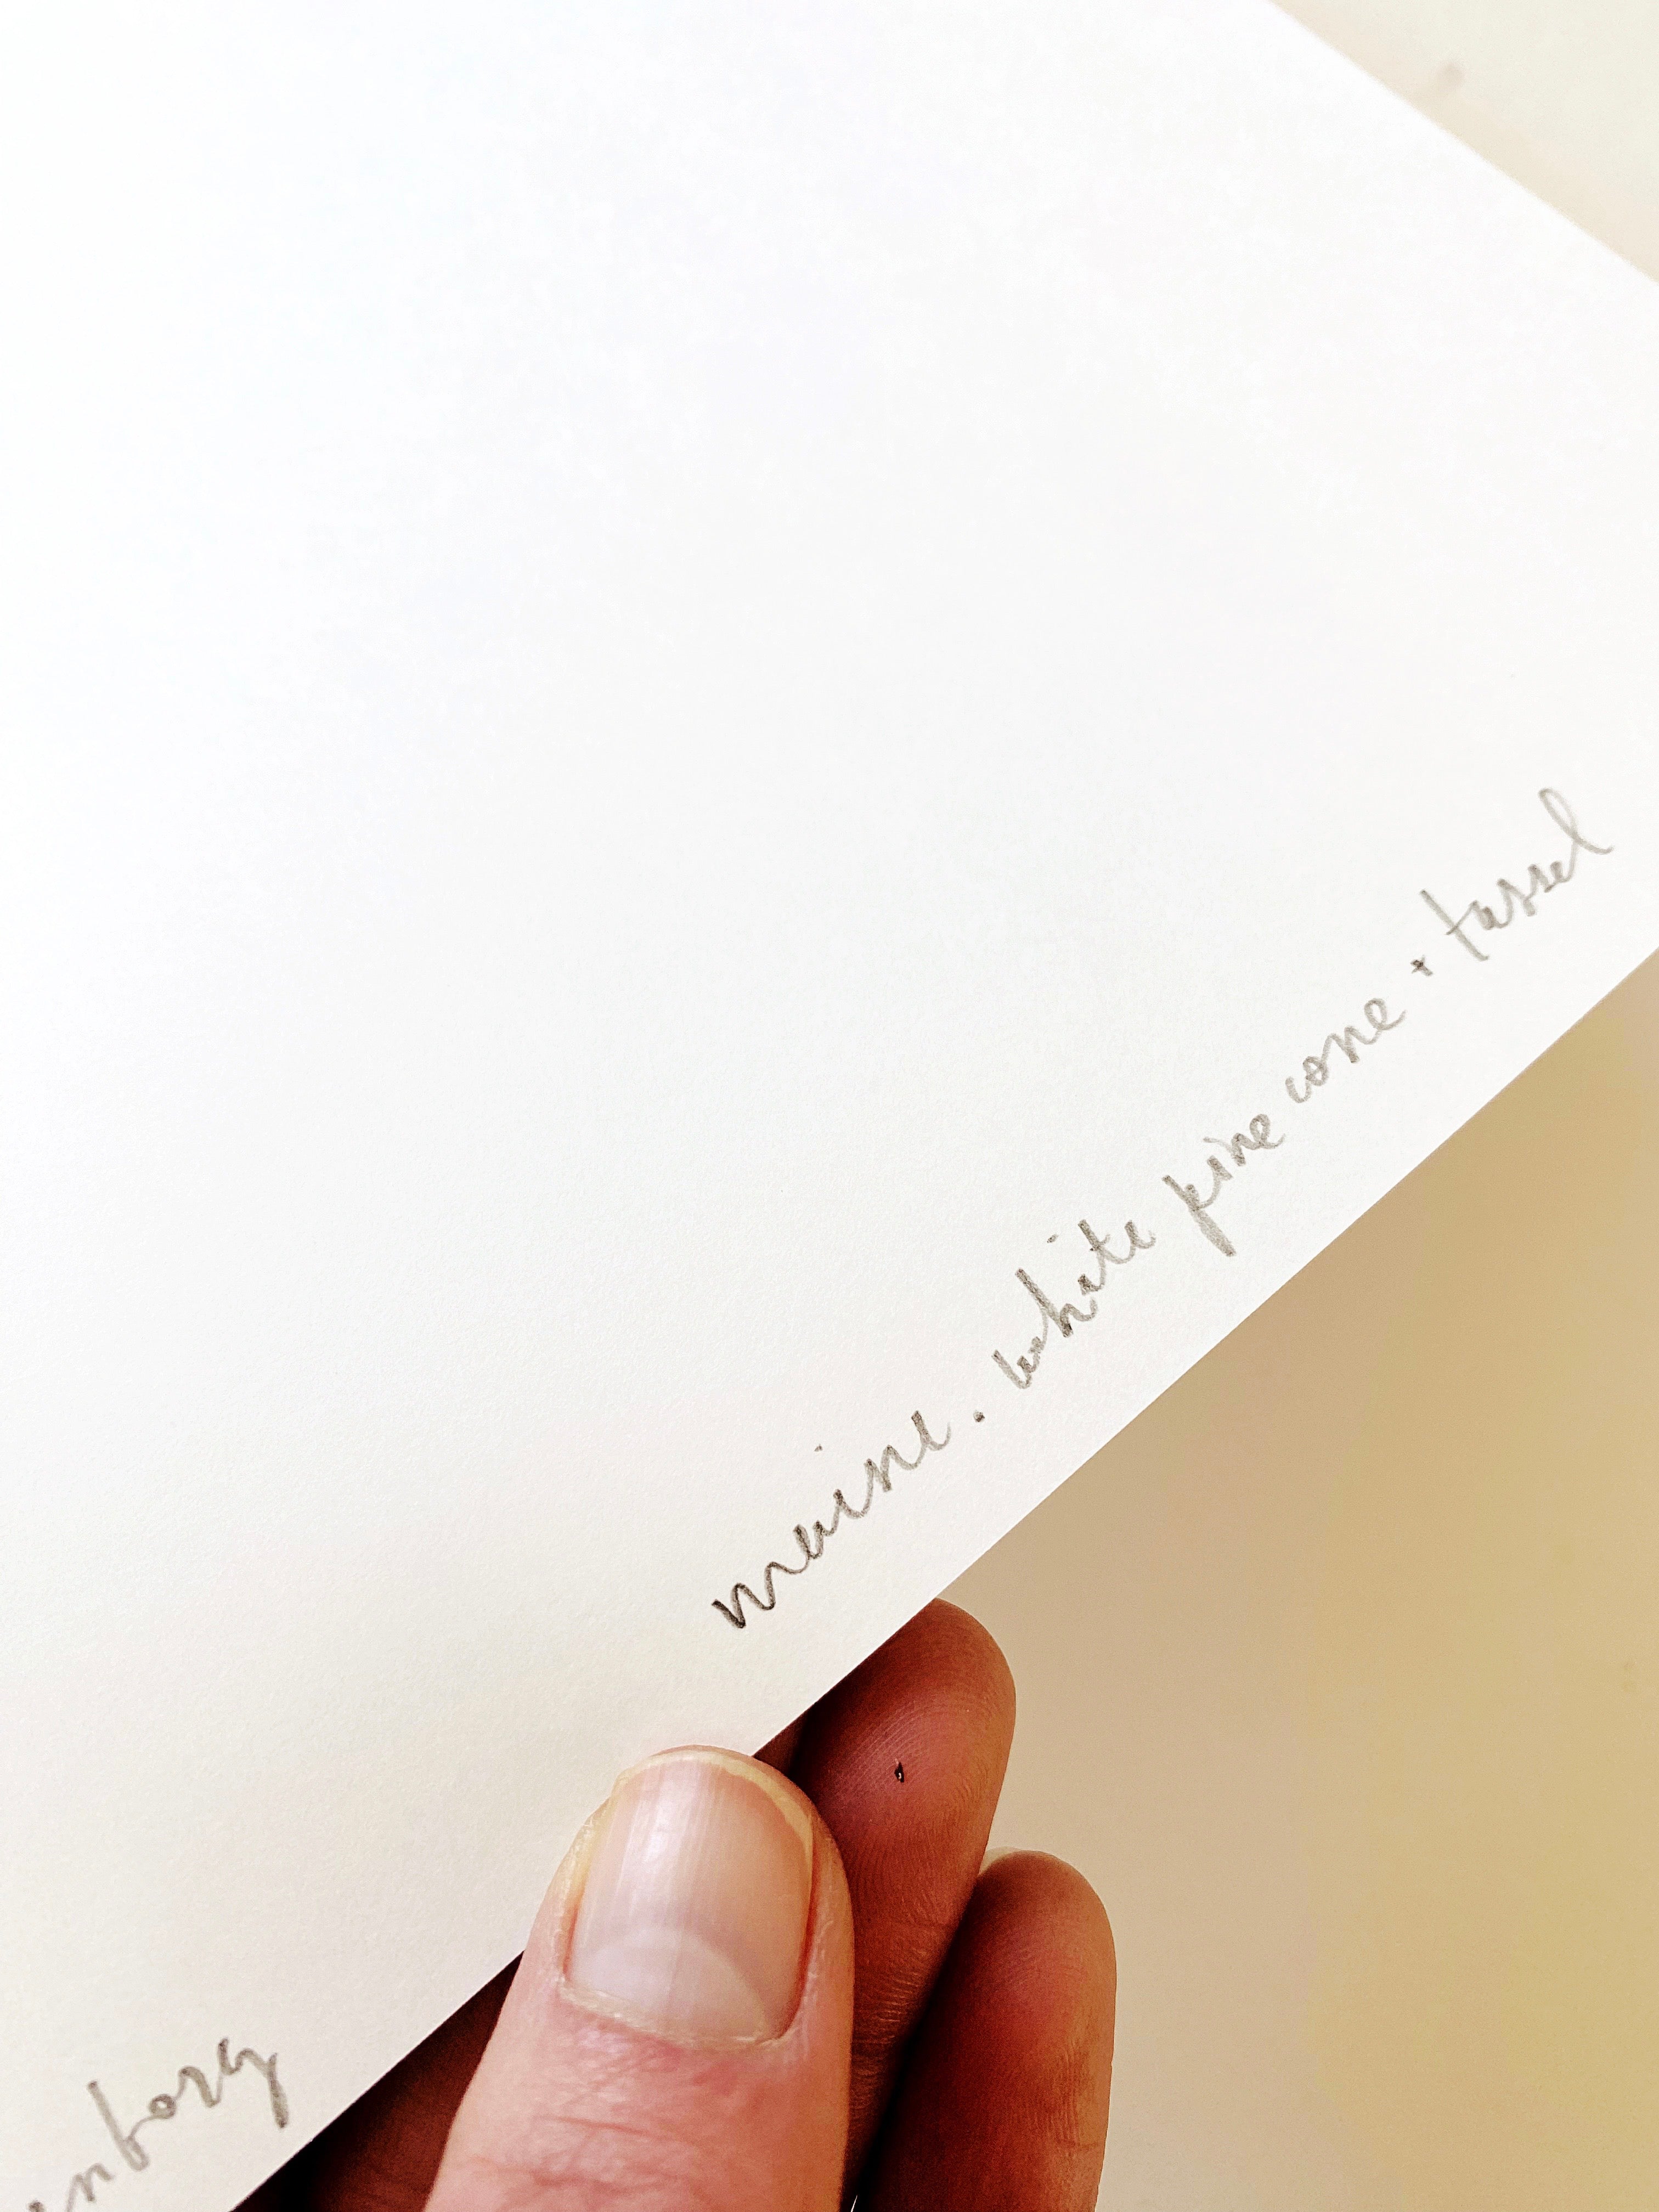 maine. white pine cone + tassel